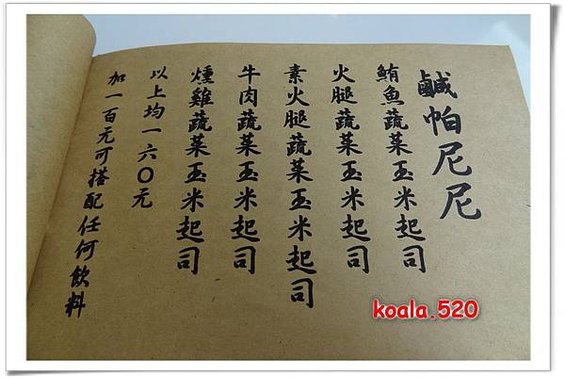 鹹帕尼尼
鮪魚蔬菜玉米起司
火腿蔬菜玉米起司
素火腿蔬菜玉米起司
牛肉蔬菜玉米起司
燻雞蔬菜玉米起司
以上均一六〇元
加一百元可搭配任何飲料
koala.520